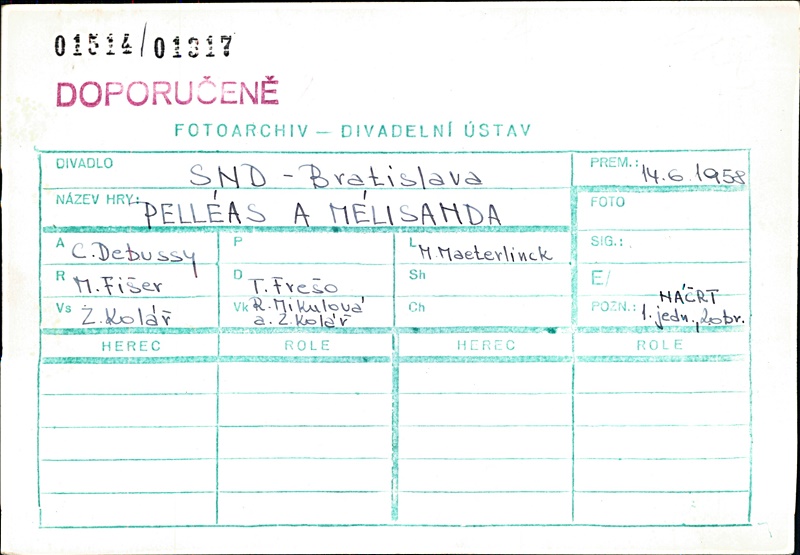 01514/01317
DOPORUČENĚ
FOTOARCHIV – DIVADELNÍ ÚSTAV
DIVADLO SND - Bratislava PREM.: 14.6.1958
NÁZEV HRY: PELLÉAS A MÉLISANDA FOTO
A C. Debussy P L M. Maeterlinck SIG.:
R M. Fišer D T. Frešo Sh E/
Vs Z. Kolář Vk R. Mikulová Ch POZN.: NÁČRT
a. Z. Kolář 1. jedn., 2obr.
HEREC ROLE HEREC ROLE